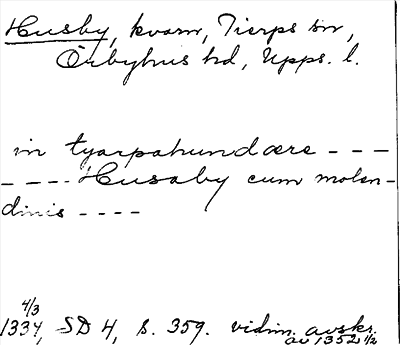 Husby, kvarn, Tierps sn,
Örbyhus hd, Upps. l.
in tyærpahundære - - -
- - - - Husaby cum molen-
dinis - - - -
4/3
1334, SD 4, s. 359. vidim. avskr.
av 1352 1/2